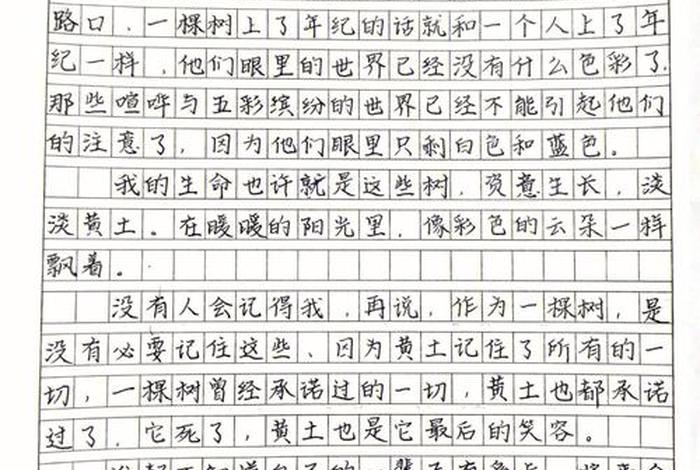 路口，一棵树上了年纪的话就和一个人上了年
纪一样，他们眼里的世界已经没有什么色彩了.
那些喧哗与五彩缤纷的世界已经不能引起他们
的注意了，因为他们眼里只剩白色和蓝色。
我的生命也许就是这些树，资意生长，淡
淡黄土。在暖暖的阳光里，像彩色的云朵一样
飘着。
没有人会记得我，再说，作为一棵树，是
没有必要记住这些、因为黄土记住了所有的一
切，一棵树曾经承诺过的一切，黄土也都承诺
过了，它死了，黄土也是它最后的笑容。